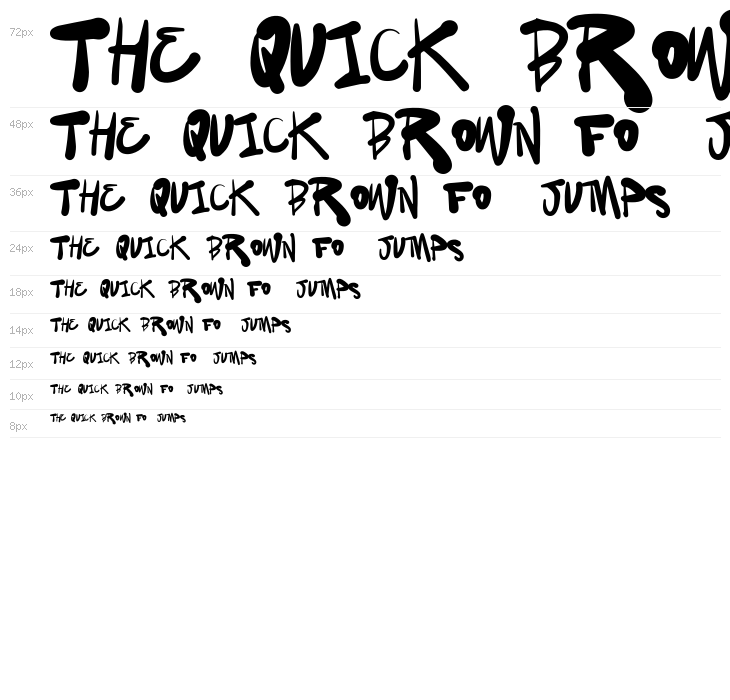 72px THE QUICK BROW
48px THE QUICK BROWN FO J
36px THE QUICK BROWN FO JUMPS
24px THE QUICK BROWN FO JUMPS
18px THE QUICK BROWN FO JUMPS
14px THE QUICK BROWN FO JUMPS
12px THE QUICK BROWN FO JUMPS
10px THE QUICK BROWN FO JUMPS
8px THE QUICK BROWN FO JUMPS